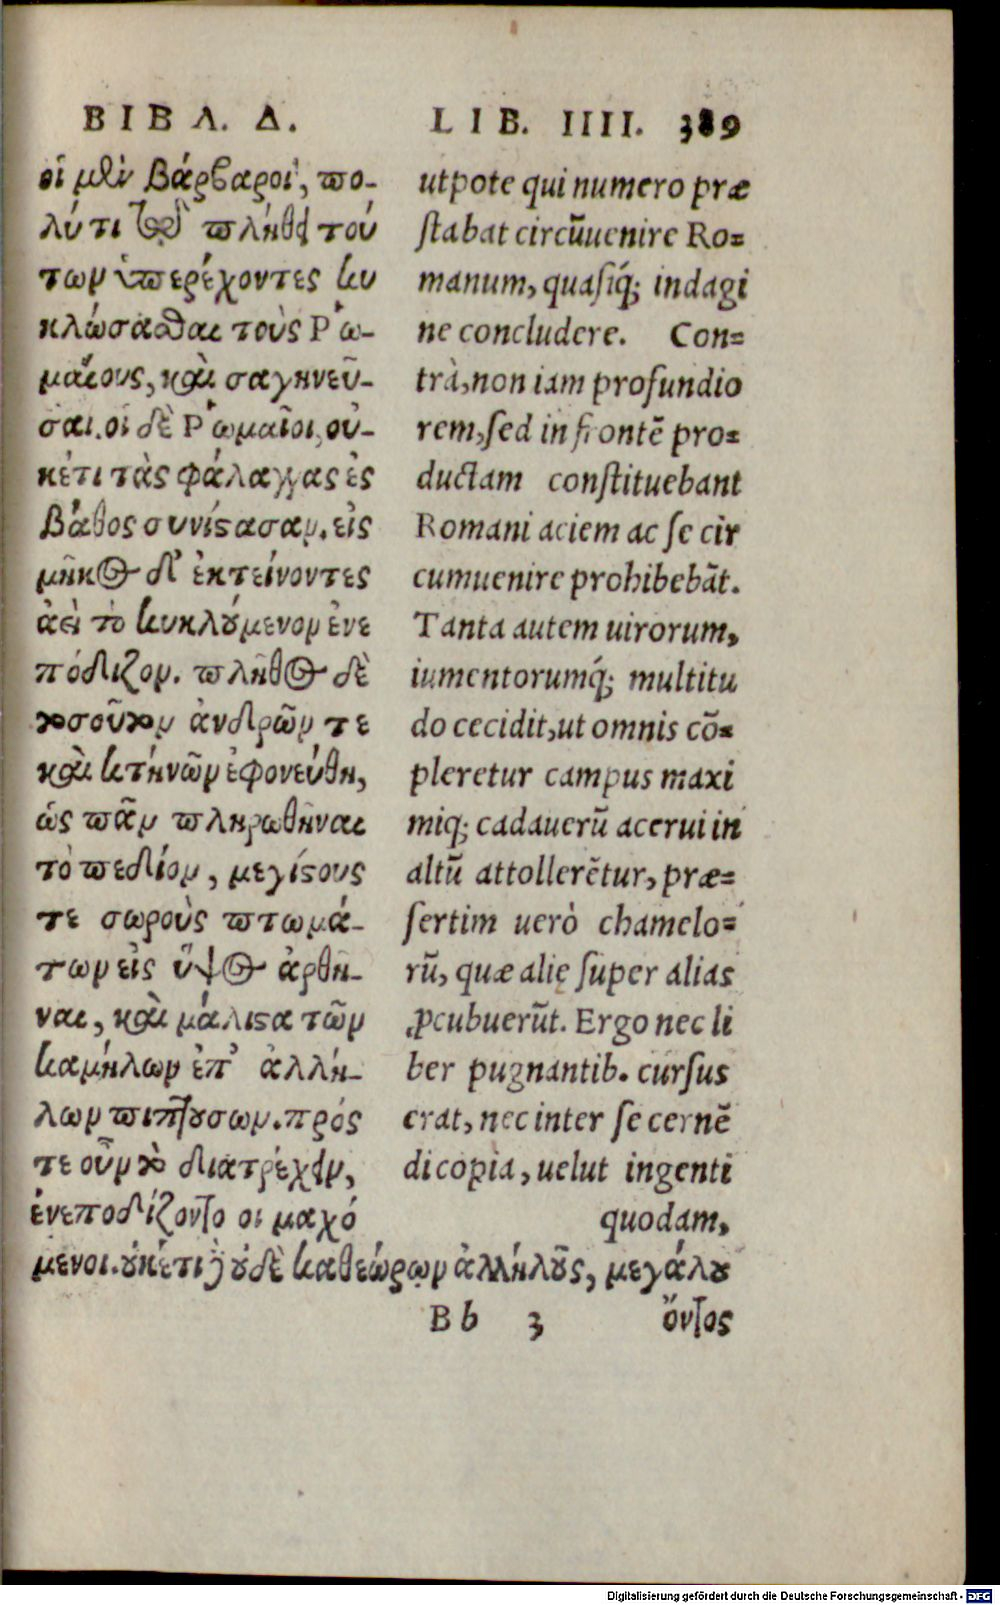 ΒΙΒΛ. Δ.
οἱ μὲν βάρβαροι, πο-
λύ τι τῷ πλήθει τού
των ὑπερέχοντες κυ
κλώσασθαι τοὺς Ῥω-
μαίους, καὶ σαγηνεῦ-
σαι. οἱ δὲ Ῥωμαῖοι, οὐ-
κέτι τὰς φάλαγγας ἐς
βάθος συνίστασαν. εἰς
μῆκος δ' ἐκτείνοντες
ἀεὶ τὸ κυκλούμενον ἐνε
πόδιζον. πλῆθος δὲ
τοσοῦτον ἀνδρῶν τε
καὶ κτήνων ἐφονεύθη,
ὡς πᾶν πληρωθῆναι
τὸ πεδίον, μεγίστους
τε σωροὺς πτωμά-
των εἰς ὕψος ἀρθῆ-
ναι, καὶ μάλιστα τῶν
καμήλων ἐπ' ἀλλή-
λων πιπτουσων. πρός
τε οὖν τὸ διατρέχειν,
ἐνεποδίζοντο οἱ μαχό
μενοι. οὐκέτι δ οὐδὲ καθεώρων ἀλλήλους, μεγάλου
LIB. IIII. 389
utpote qui numero præ
stabat circũuenire Ro=
manum, quasiq́; indagi
ne concludere. Con=
trà, non iam profundio
rem, sed in frontẽ pro=
ductam constituebant
Romani aciem ac se cir
cumuenire prohibebãt.
Tanta autem uirorum,
iumentorumq́; multitu
do cecidit, ut omnis cõ=
pleretur campus maxi
miq; cadauerũ acerui in
altũ attollerẽtur, præ=
sertim uerò chamelo=
rũ, quæ alię super alias
ꝓcubuerũt. Ergo nec li
ber pugnantib. cursus
erat, nec inter se cernẽ
di copia, uelut ingenti
quodam,
Bb 3 ὄντος
Digitalisierung gefördert durch die Deutsche Forschungsgemeinschaft - DFG